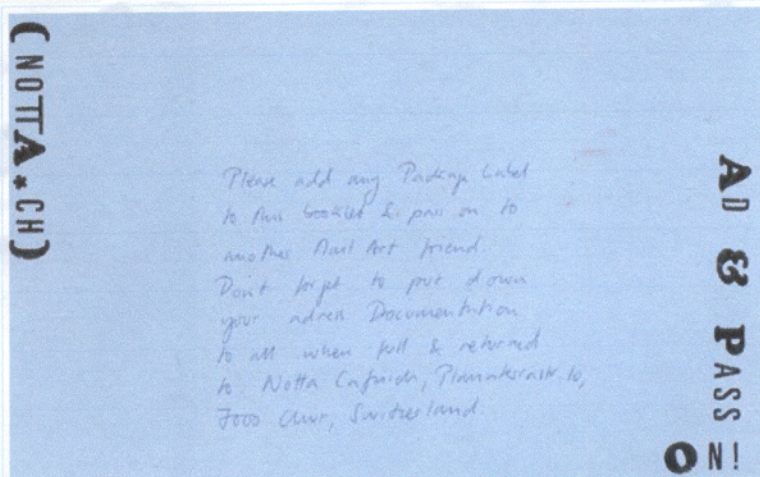 (NOTTA*CH)
Please add any Package Label
to this booklet & pass on to
another Mail Art friend.
Don't forget to put down
your adress Documentation
to all when full & returned
to Notta Caflisch,
7000 Chur, Switzerland.
AD & PASS
ON!